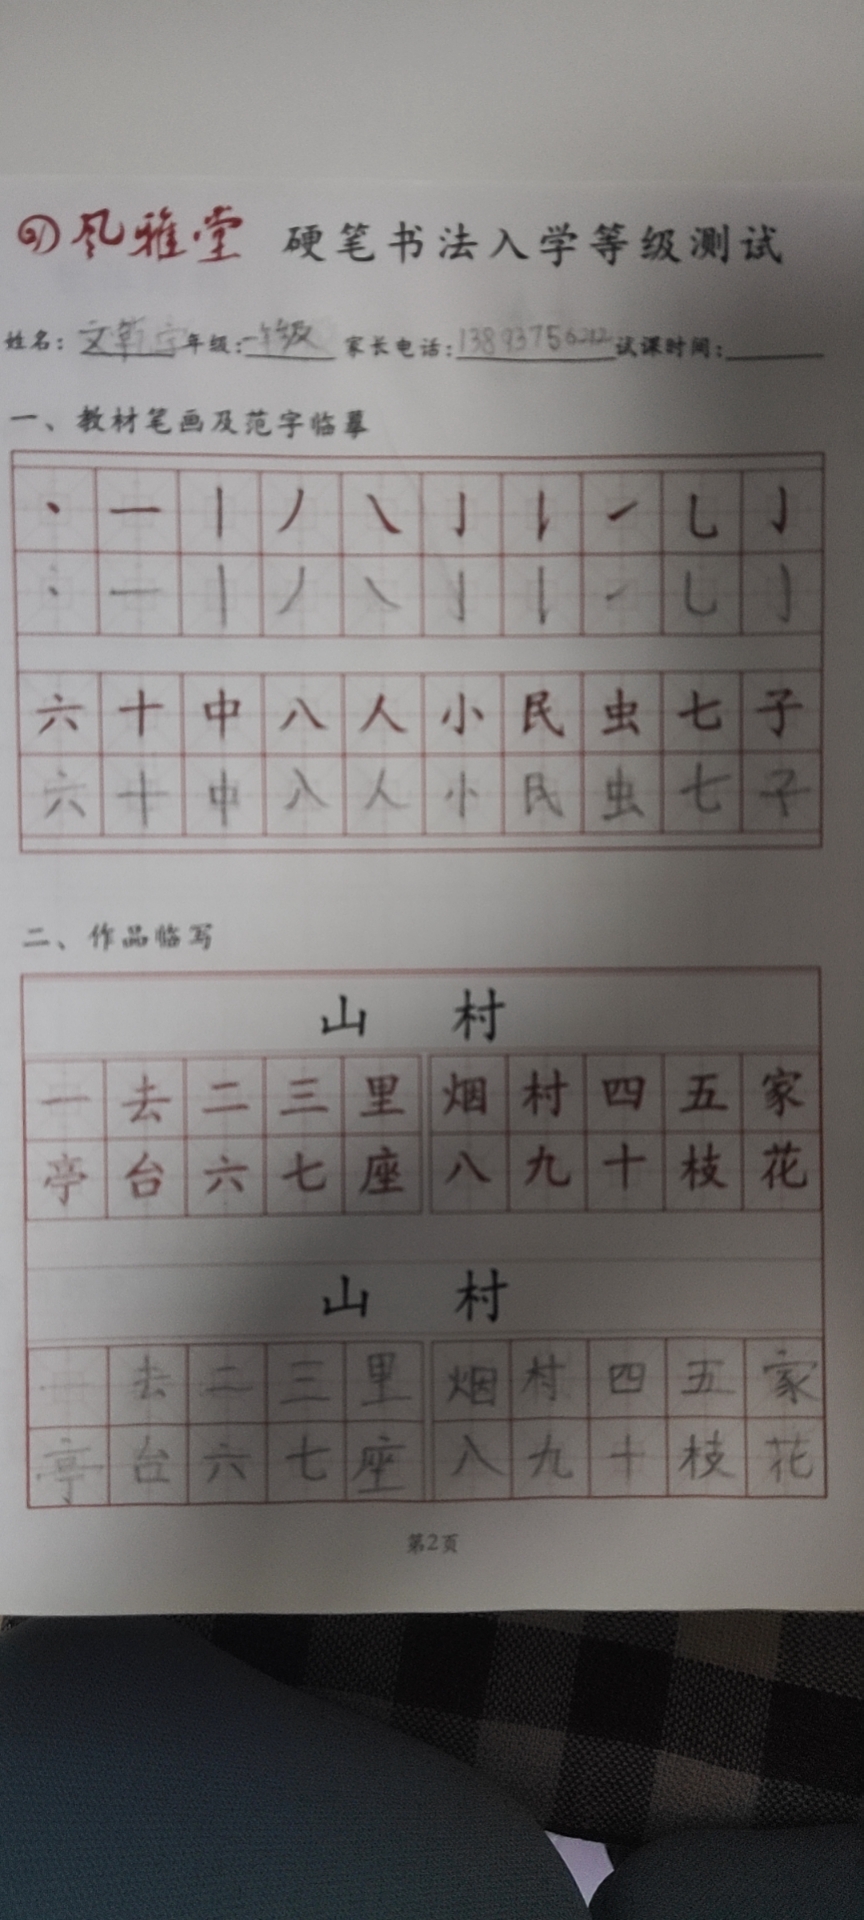 风雅堂 硬笔书法入学等级测试
姓名: 文 年级: 一年级 家长电话: 13893756212 试课时间:
一、教材笔画及范字临摹
丶 一 丨 丿 ㇏ 亅 ㇀ 乚 亅
丶 一 丨 丿 ㇏ 亅 ㇀ 乚 亅
六 十 中 八 人 小 民 虫 七 子
六 十 中 八 人 小 民 虫 七 子
二、作品临写
山 村
一 去 二 三 里 烟 村 四 五 家
亭 台 六 七 座 八 九 十 枝 花
山 村
一 去 二 三 里 烟 村 四 五 家
亭 台 六 七 座 八 九 十 枝 花
第2页